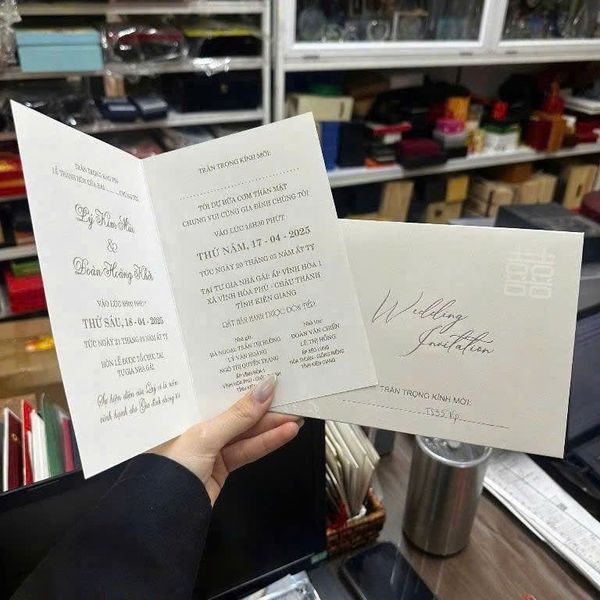 TRÂN TRỌNG BÁO TIN
LỄ THÀNH HÔN CỦA
CHÚNG TÔI
Lý Kim
&
Đoàn Hoàng
VÀO LÚC PHÚT
THỨ SÁU, 18-04-2025
TỨC NGÀY 21 THÁNG 03 NĂM ẤT TỴ
HÔN LỄ ĐƯỢC TỔ CHỨC TẠI
TƯ GIA NHÀ GÁI
Sự hiện diện của Quý vị là niềm
vinh hạnh cho Gia đình chúng tôi
TRÂN TRỌNG KÍNH MỜI:
TỚI DỰ BỮA CƠM THÂN MẬT
CHUNG VUI CÙNG GIA ĐÌNH CHÚNG TÔI
VÀO LÚC PHÚT
THỨ NĂM, 17-04-2025
TỨC NGÀY 20 THÁNG 03 NĂM ẤT TỴ
TẠI TƯ GIA NHÀ GÁI: ẤP VĨNH HÒA 1
XÃ VĨNH HÒA PHÚ - CHÂU THÀNH
TỈNH KIÊN GIANG
RẤT HÂN HẠNH ĐƯỢC ĐÓN TIẾP
Nhà gái:
BÀ NGOẠI: TRẦN THỊ HỒNG
LÝ VĂN HOÀNG
NGÔ THỊ QUYÊN TRANG
ẤP VĨNH HÒA 1
Nhà trai:
ĐOÀN VĂN CHIẾN
LÊ THỊ HỒNG
Wedding
Invitation
TRÂN TRỌNG KÍNH MỜI: